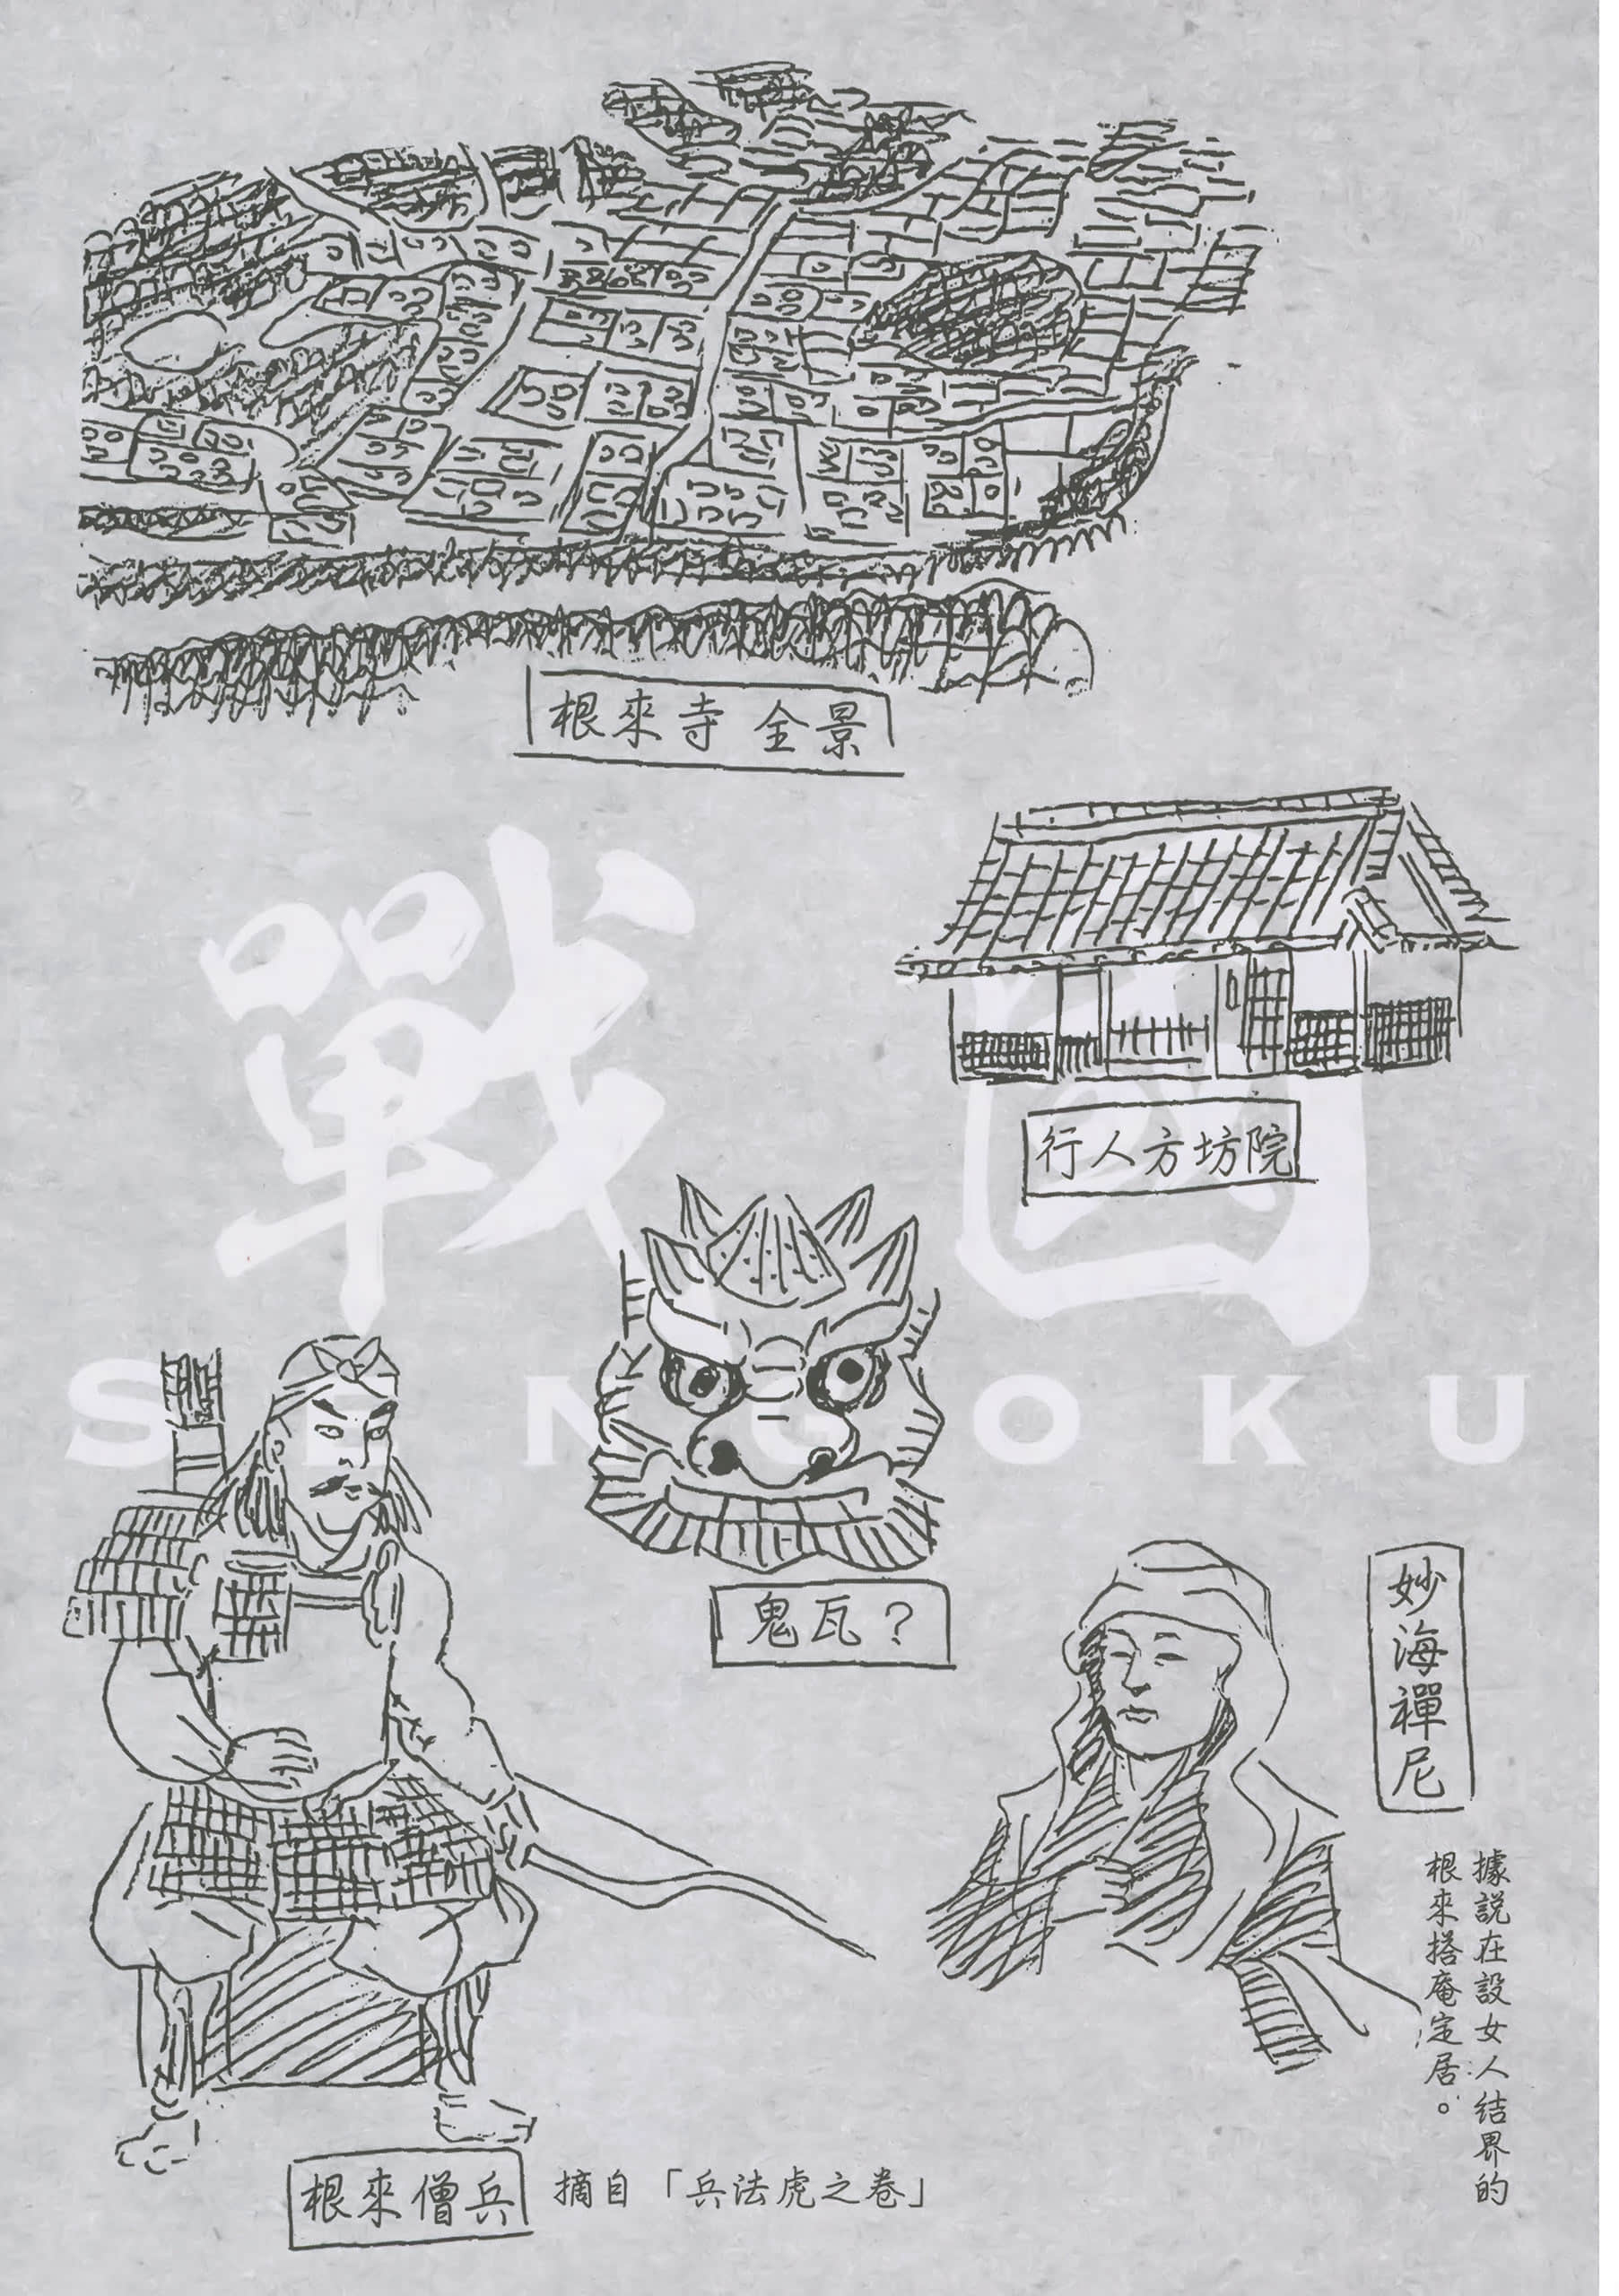 根來寺 全景
戰國
SENGOKU
行人方坊院
鬼瓦？
妙海禪尼
據説在設女人结界的
根來搭庵定居。
根來僧兵
摘自「兵法虎之卷」